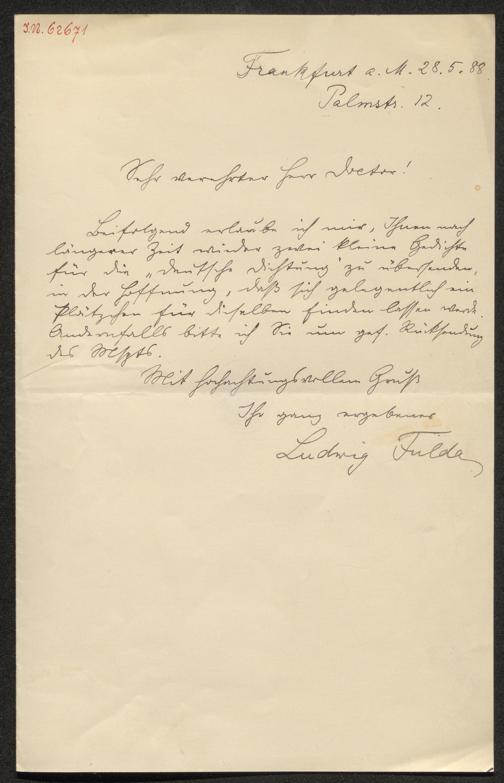 I.N. 62671
Frankfurt a. M. 28.5.88
Palmstr. 12.
Sehr verehrter Herr Doctor!
Beifolgend erlaube ich mir, Ihnen nach
längerer Zeit wieder zwei kleine Gedichte
für die „Deutsche Dichtung" zu übersenden,
in der Hoffnung, daß sich gelegentlich ein
Plätzchen für dieselben finden lassen werde.
Andernfalls bitte ich Sie um gef. Rücksendung
des Mscpts.
Mit hochachtungsvollem Gruß
Ihr ganz ergebener
Ludwig Fulda